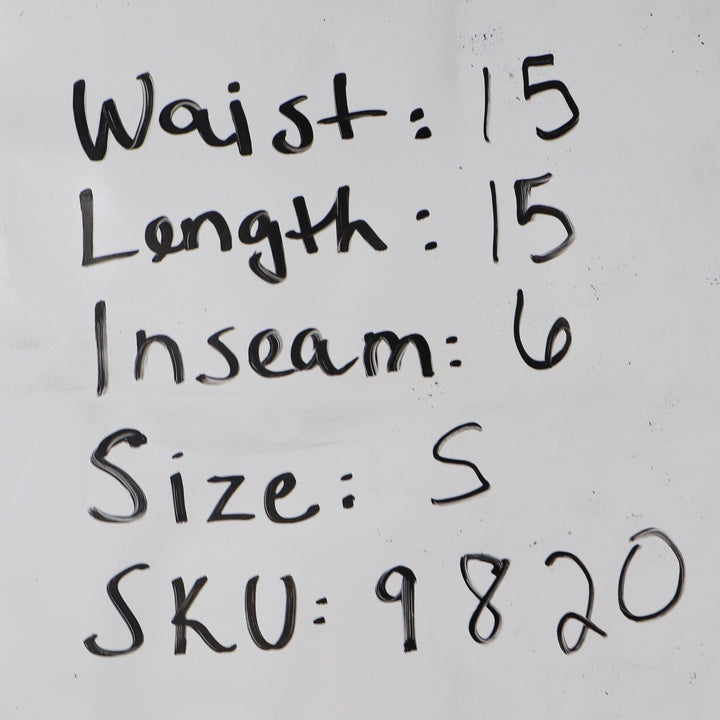 Waist: 15
Length: 15
Inseam: 6
Size: S
SKU: 9820